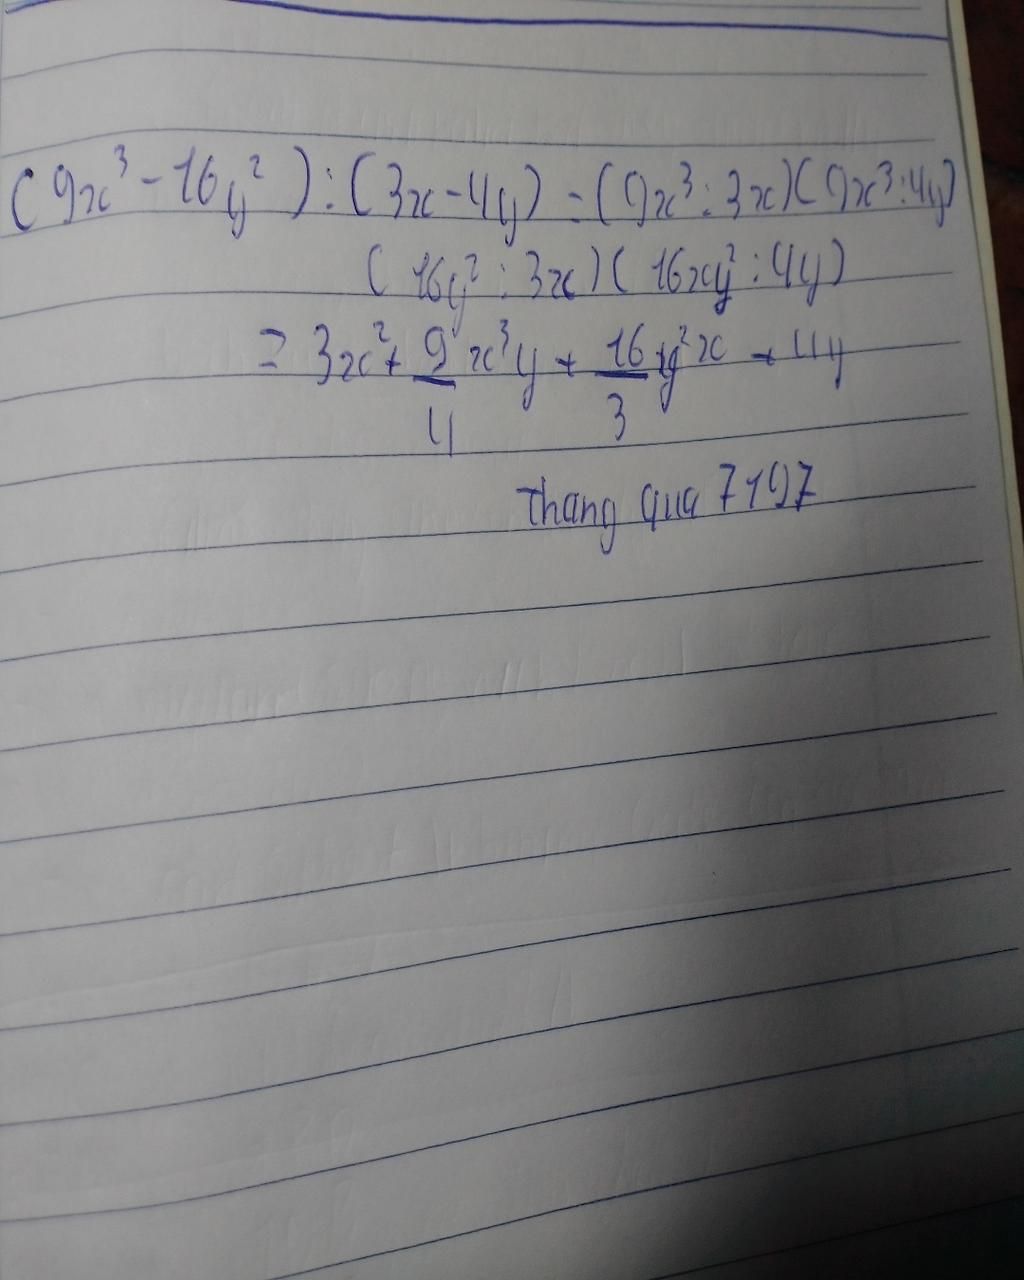 (9x³ - 16y²) : (3x - 4y) = (9x³ : 3x)(9x³ : 4y)
(16y² : 3x)(16xy² : 4y)
= 3x² + 9/4 x³y + 16/3 y²x + 4y
Thang qua 7197